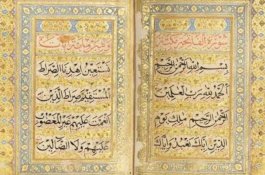 بِسْمِ اللهِ الرَّحْمٰنِ الرَّحِيمِ
الْحَمْدُ لِلّٰهِ رَبِّ الْعٰلَمِينَ
الرَّحْمٰنِ الرَّحِيمِ مٰلِكِ يَوْمِ
الدِّينِ اِيَّاكَ نَعْبُدُ وَاِيَّاكَ
نَسْتَعِينُ اِهْدِنَا الصِّرَاطَ
الْمُسْتَقِيمَ صِرَاطَ الَّذِينَ
اَنْعَمْتَ عَلَيْهِمْ غَيْرِ الْمَغْضُوبِ
عَلَيْهِمْ وَلَا الضَّالِّينَ